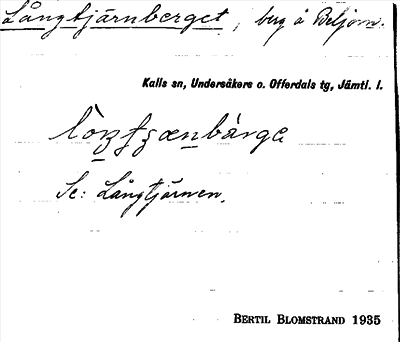 Långtjärnberget, berg å
Kalls sn, Undersåkers o. Offerdals tg, Jämtl. l.
Se: Långtjärnen.
BERTIL BLOMSTRAND 1935